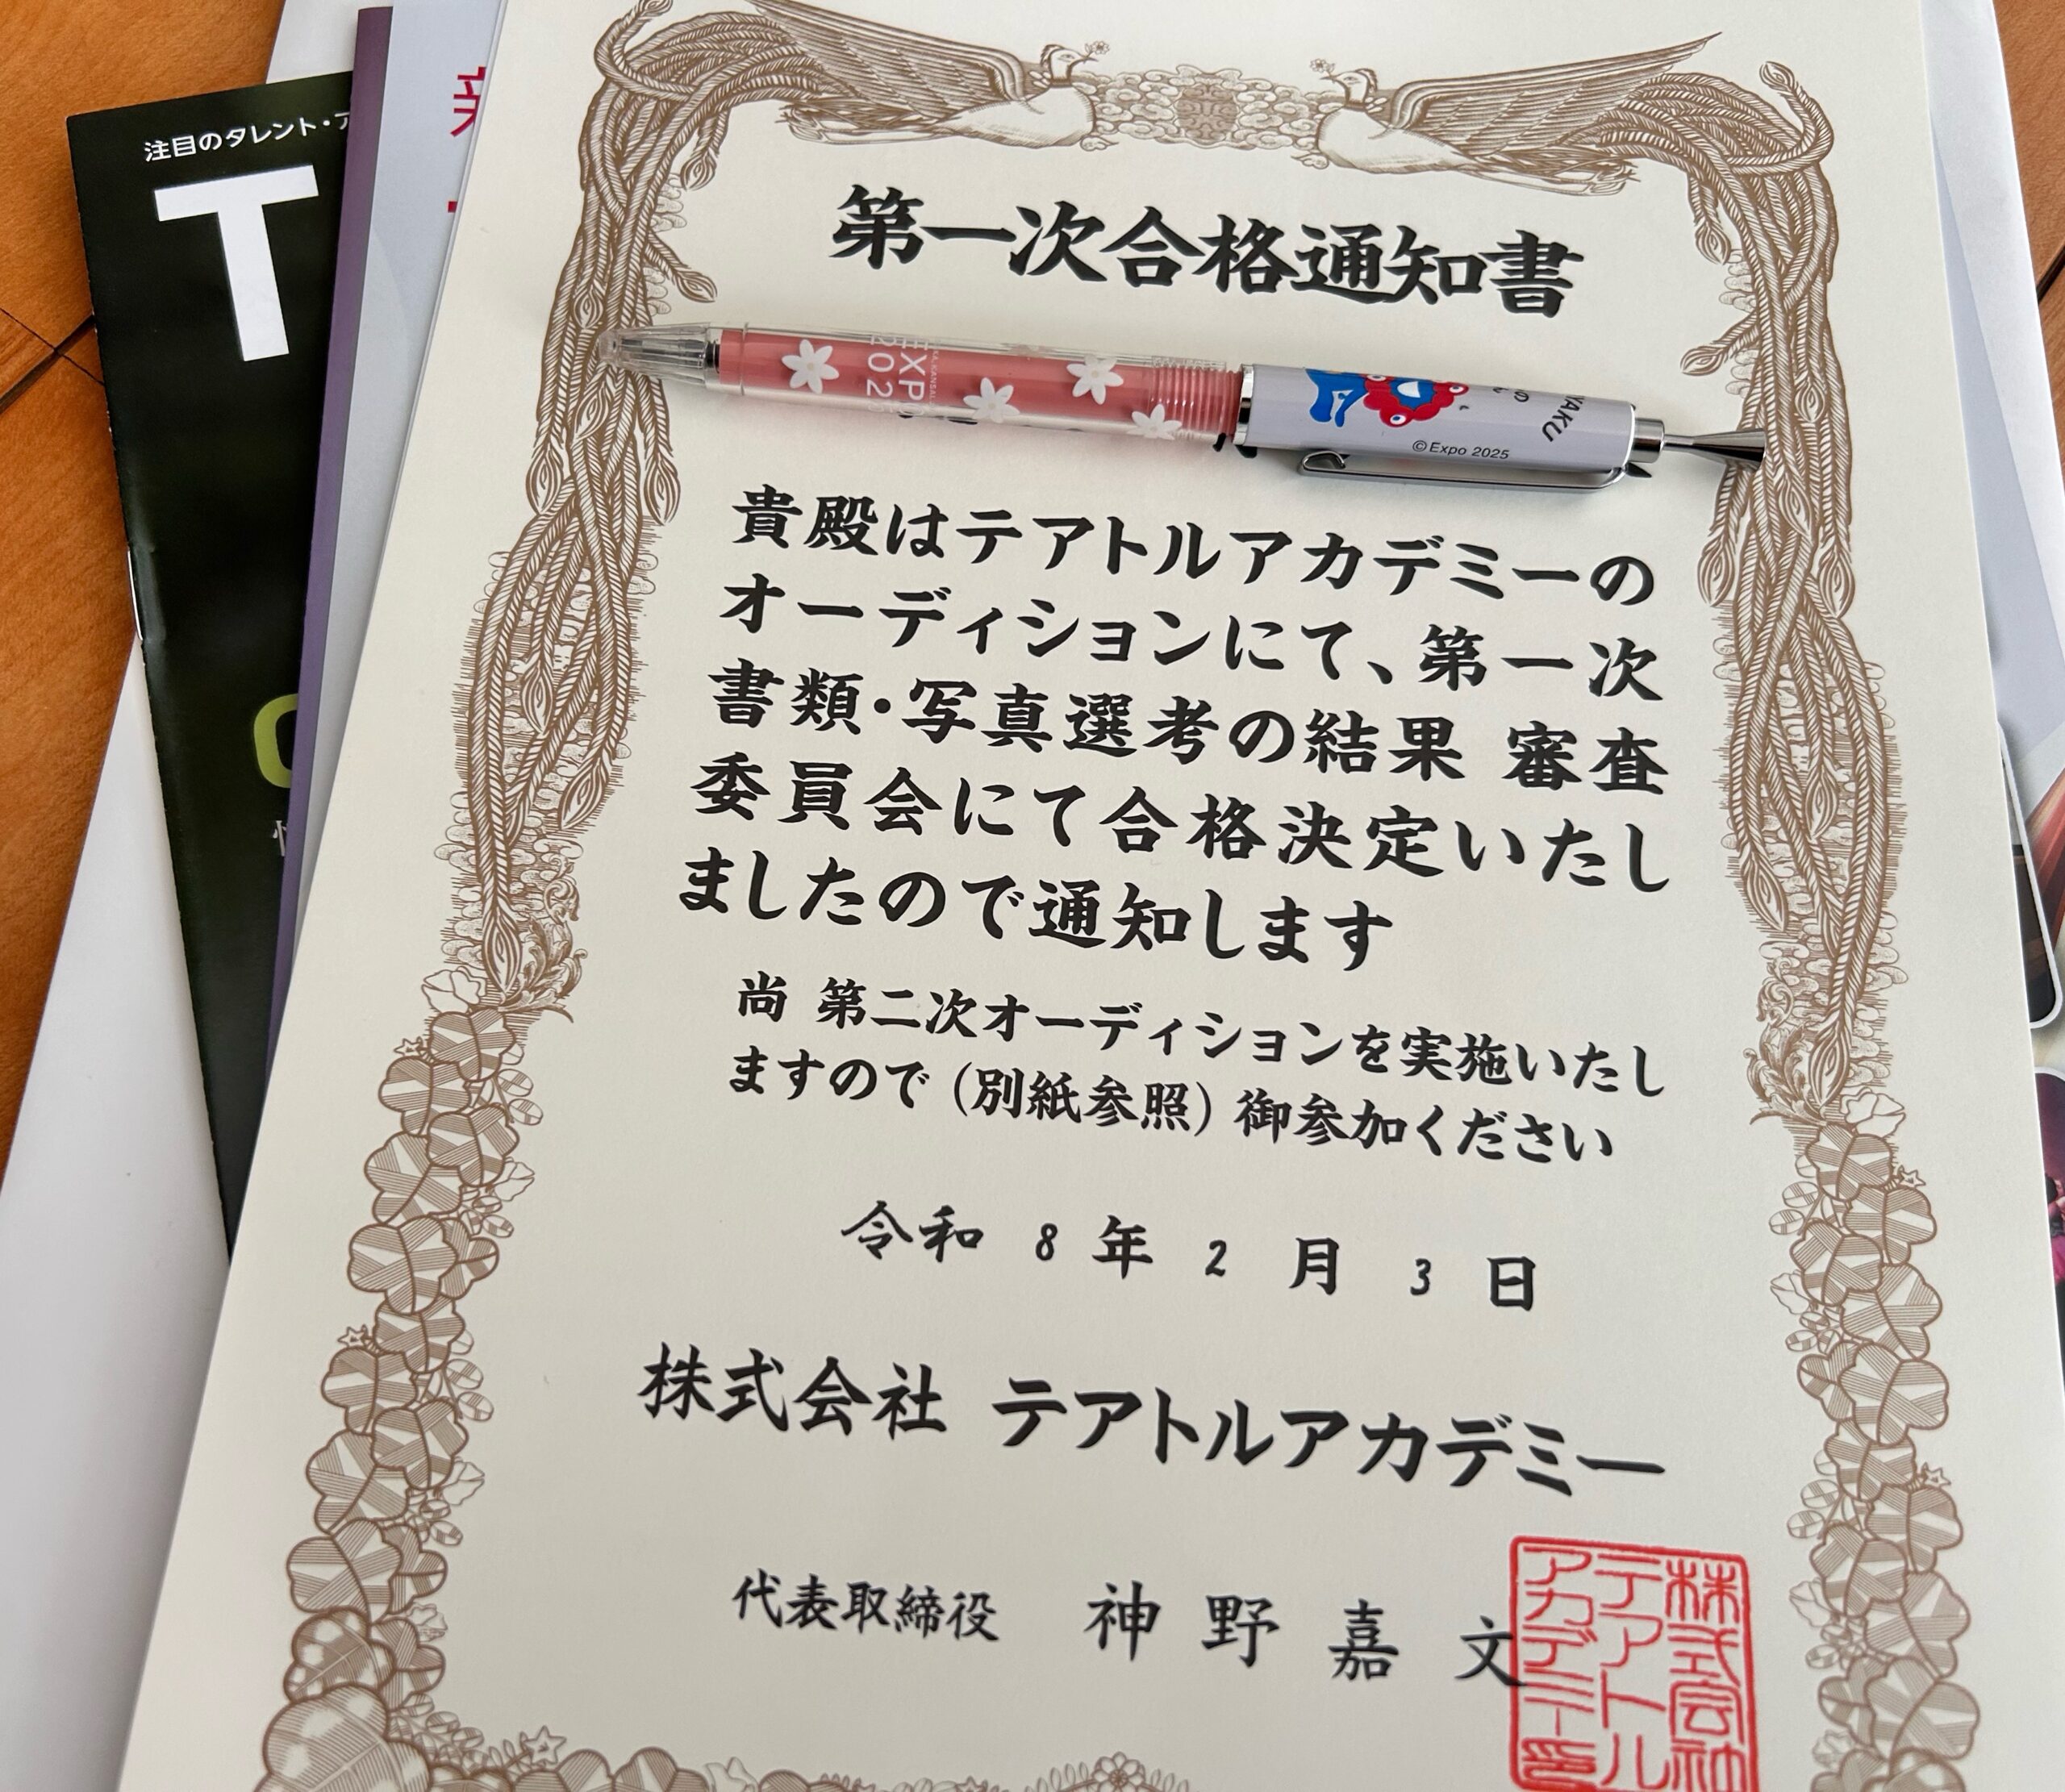 注目のタレント・ア
T
第一次合格通知書
EXPO
202
©Expo 2025
貴殿はテアトルアカデミーの
オーディションにて、第一次
書類・写真選考の結果 審査
委員会にて合格決定いたし
ましたので通知します
尚 第二次オーディションを実施いたし
ますので(別紙参照)御参加ください
令和 8 年 2 月 3 日
株式会社 テアトルアカデミー
代表取締役 神野嘉文
株式会社
テアトル
アカデミー印